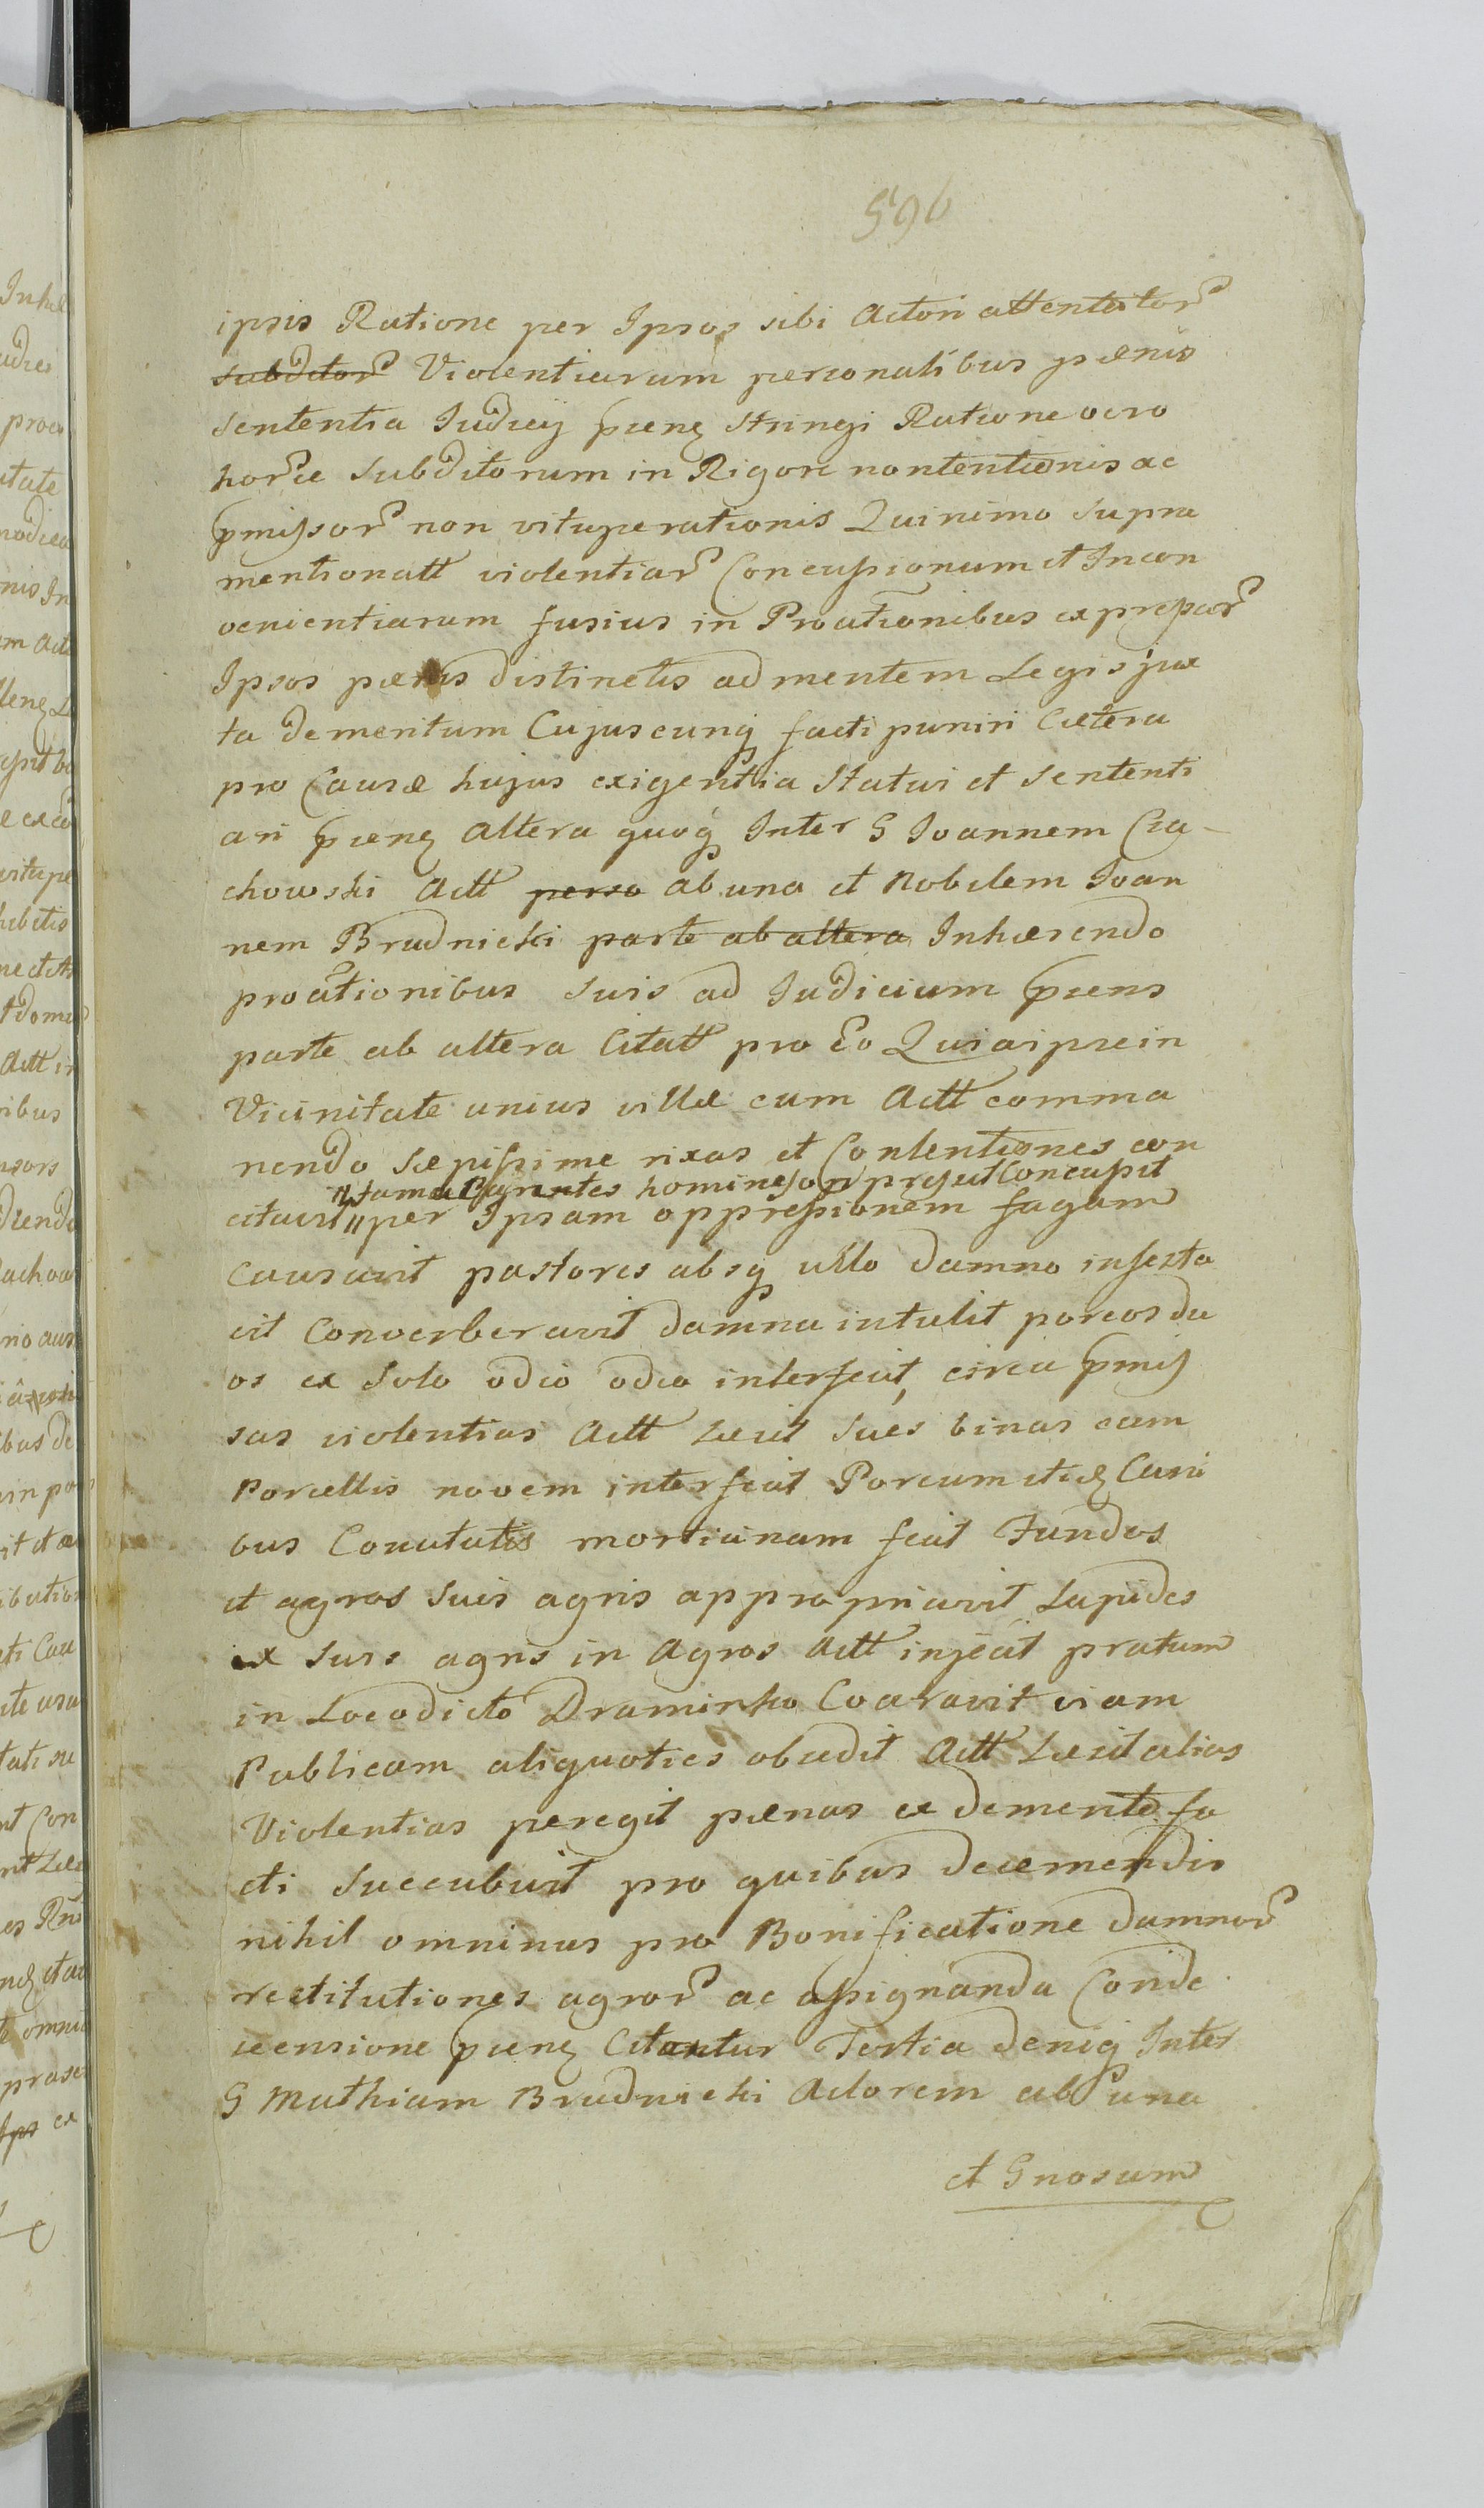 596
ipsis Ratione per Ipsos sibi Actori attentator
subditor Violentiarum personalibus pænis
Sententia Iudicij pñenꝫ Stringi Ratione vero
horce Subditorum in Rigore nontentionis ac
pmissor non vituperationis Quinimo Supra
mentionatt violentiar Concussionum et Incon
venientiarum fusius in Proationibus expressar
Ipsos pænis distinctis ad mentem Legis jux
ta dementum Cujuscunq facti puniri Cætera
pro Causæ hujus exigentia Statui et Sententi
ari pñenꝫ Altera quoq Inter G Ioannem Cia-
chowski Actt perso ab una et Nobilem Ioan
nem Brudnicki parte ab altera Inhærendo
proationibus Suis ad Iudicium pñens
parte ab altera Citatt pro Eo Quia ipse in
Vicinitate unius villæ cum Actt comma
nendo Sæpissime rixas et Contentiones con
homines Concussit
citavit per Ipsam oppressionem fugam
Causavit pastores absq ullo damno infesta
vit Converberavit damna intulit porcos du
os ex Solo odio odio interfecit, circa pmis
sas violentias Actt Læsit Sues binas cum
Porcellis novem interfecit Porcum Cani
bus Conututis morticinam fecit Fundos
et agros Suis agris appropriavit Lapides
ex Suis agris in Agros Actt injecit pratum
in Loco dicto Draminko Coaravit viam
Publicam aliquoties obsedit Actt Læsit alias
Violentias peregit pænas ex demerito fa
cti Succubuit pro quibus decernendis
nihil ominus pro Bonificatione damnor
restitutiones agror ac assignanda Conde
scensione pñenꝫ Citantur Tertia deniq Inter
G Mathiam Brudnicki Actorem ab una
et Gnosum